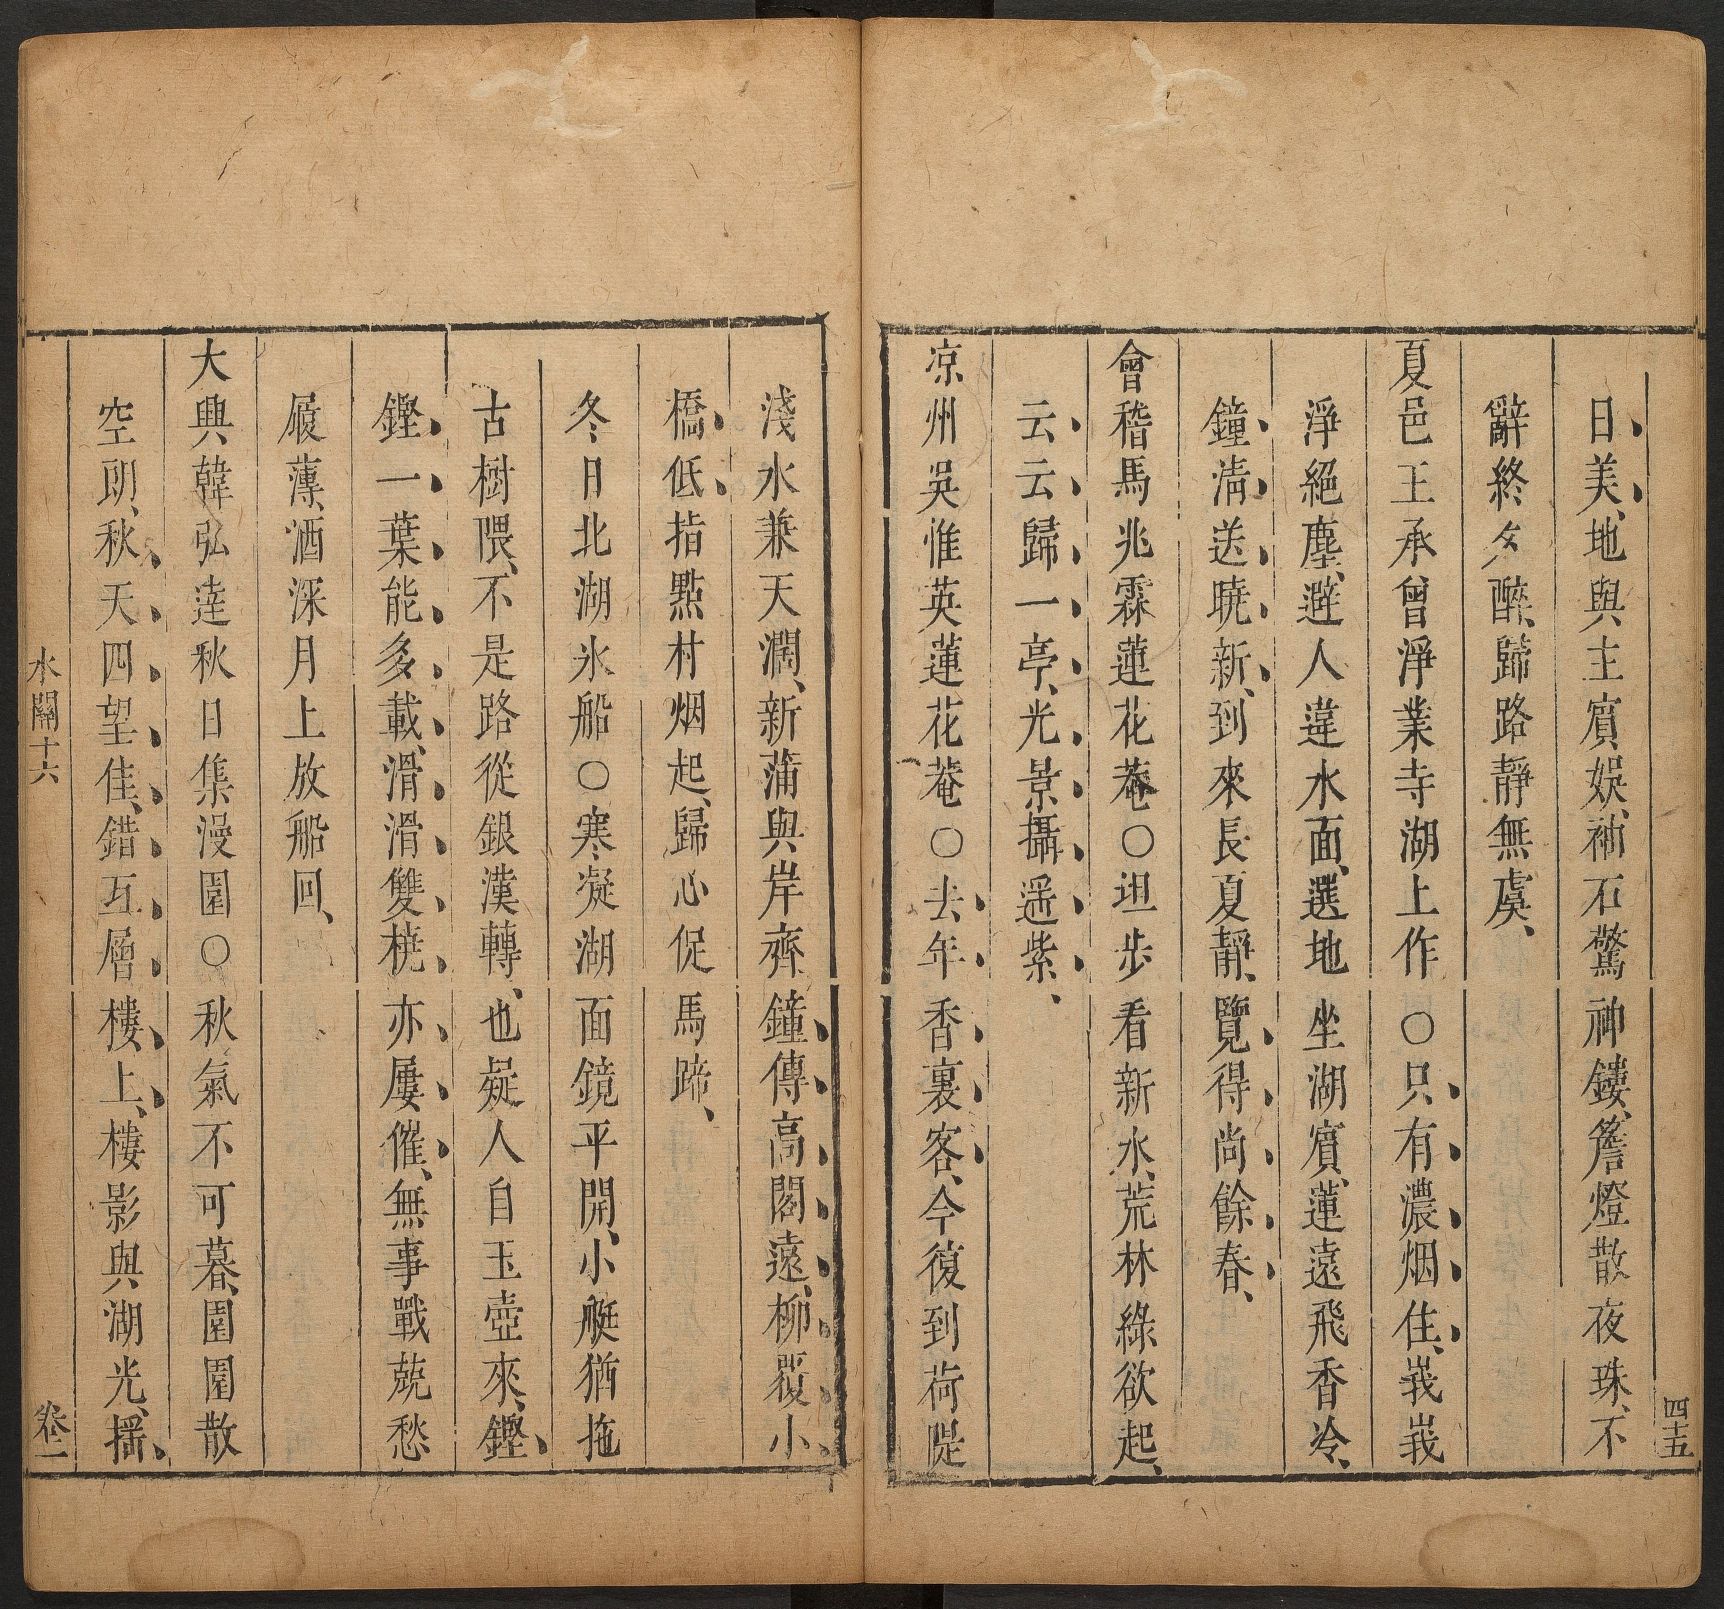 四十五
日美、地與主賓娛、袖石驚神鏤、簷燈散夜珠、不
辭終夕醉、歸路靜無虞、
夏邑王承曾淨業寺湖上作○只有濃烟住、峩峩
淨絕塵、遊人違水面、選地坐湖賓、蓮遠飛香冷、
鐘清送曉新、到來長夏靜、覽得尚餘春、
會稽馬兆霖蓮花菴○坦步看新水、荒林綠欲起、
云云歸一亭、光景攝遥紫、
凉州吳惟英蓮花菴○去年香裏客、今復到荷隄
淺水兼天濶、新蒲與岸齊、鐘傳高閣遠、柳覆小
橋低、指點村烟起、歸心促馬蹄、
冬日北湖氷船○寒凝湖面鏡平開、小艇猶拖
古樹隈、不是路從銀漢轉、也疑人自玉壺來、鏗
鏗一葉能多載、滑滑雙橈亦屢催、無事戰兢愁
履薄、酒深月上放船回、
大興韓弘逵秋日集漫園○秋氣不可暮、園園散
空朗、秋天四望佳、錯互層樓上、樓影與湖光、搖
水關十六
卷一